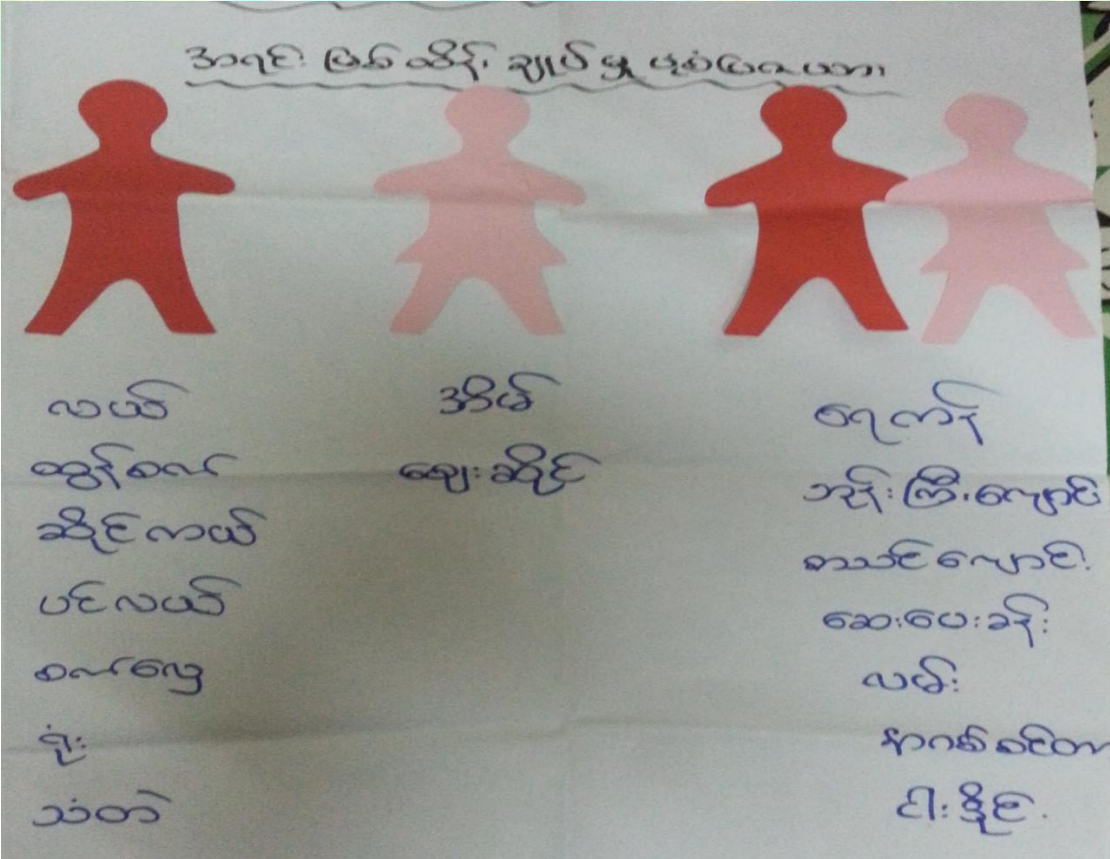 အရင်းအမြစ်ထိန်းချုပ်မှု ပုံစံပြဇယား
လယ်
ထွန်စက်
ဆိုင်ကယ်
ပင်လယ်
စက်လှေ
ရုံး
သဲတဲ
အိမ်
ဈေးဆိုင်
ရေကန်
ဘုန်းကြီးကျောင်း
စာသင်ကျောင်း
ဆေးပေးခန်း
လမ်း
နာဂစ်စင်တာ
ငါးဒိုင်